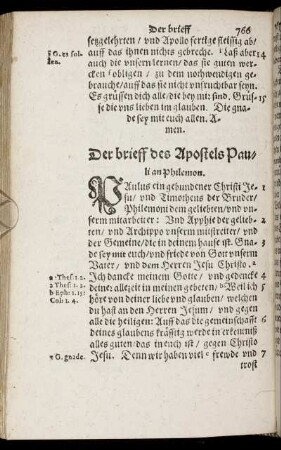 Der brieff 766
setzgelehrten / vnd Apollo fertige fleissig ab /
auff das ihnen nichts gebreche. Laß aber 14
auch die vnsern lernen / das sie guten wer-
cken obligen / zu dem nohtwendigen ge-
brauche / auff das sie nicht vnfruchtbar seyn.
Es grüssen dich alle / die bey mir sind. Grüs- 15
se die vns lieben im glauben. Die gna-
de sey mit euch allen. A-
men.
Der brieff des Apostels Pau-
li an Philemon.
PAulus ein gebundener Christi Je- 1
su / vnd Timotheus der Bruder /
Philemoni dem geliebten / vnd vn-
serm mitarbeter : Vnd Apphie der gelieb- 2
ten / vnd Archippo vnserm mitstreiter / vnd
der Gemeine / die in deinem hause ist. Gna- 3
de sey mit euch / vnd friede von Gott vnserm
Vater / vnd dem Herren Jesu Christo.
Ich dancke meinem Gott / vnd gedencke 4
deine allezeit in meinen gebeten / Weil ich 5
hör von deiner liebe vnd glauben / welchen
du hast an den Herren Jesum / vnd gegen
alle die heiligen: Auff das die gemeinschafft 6
deines glaubens kräfftig werde in erkentniß
alles guten / das in euch ist / gegen Christo
Jesu. Denn wir haben viel frewde vnd 7
trost
a Thess. 1. 2.
2 Thess 1. 3.
b Ephe 1. 15:
Col: 1. 4.
* O. gnade.